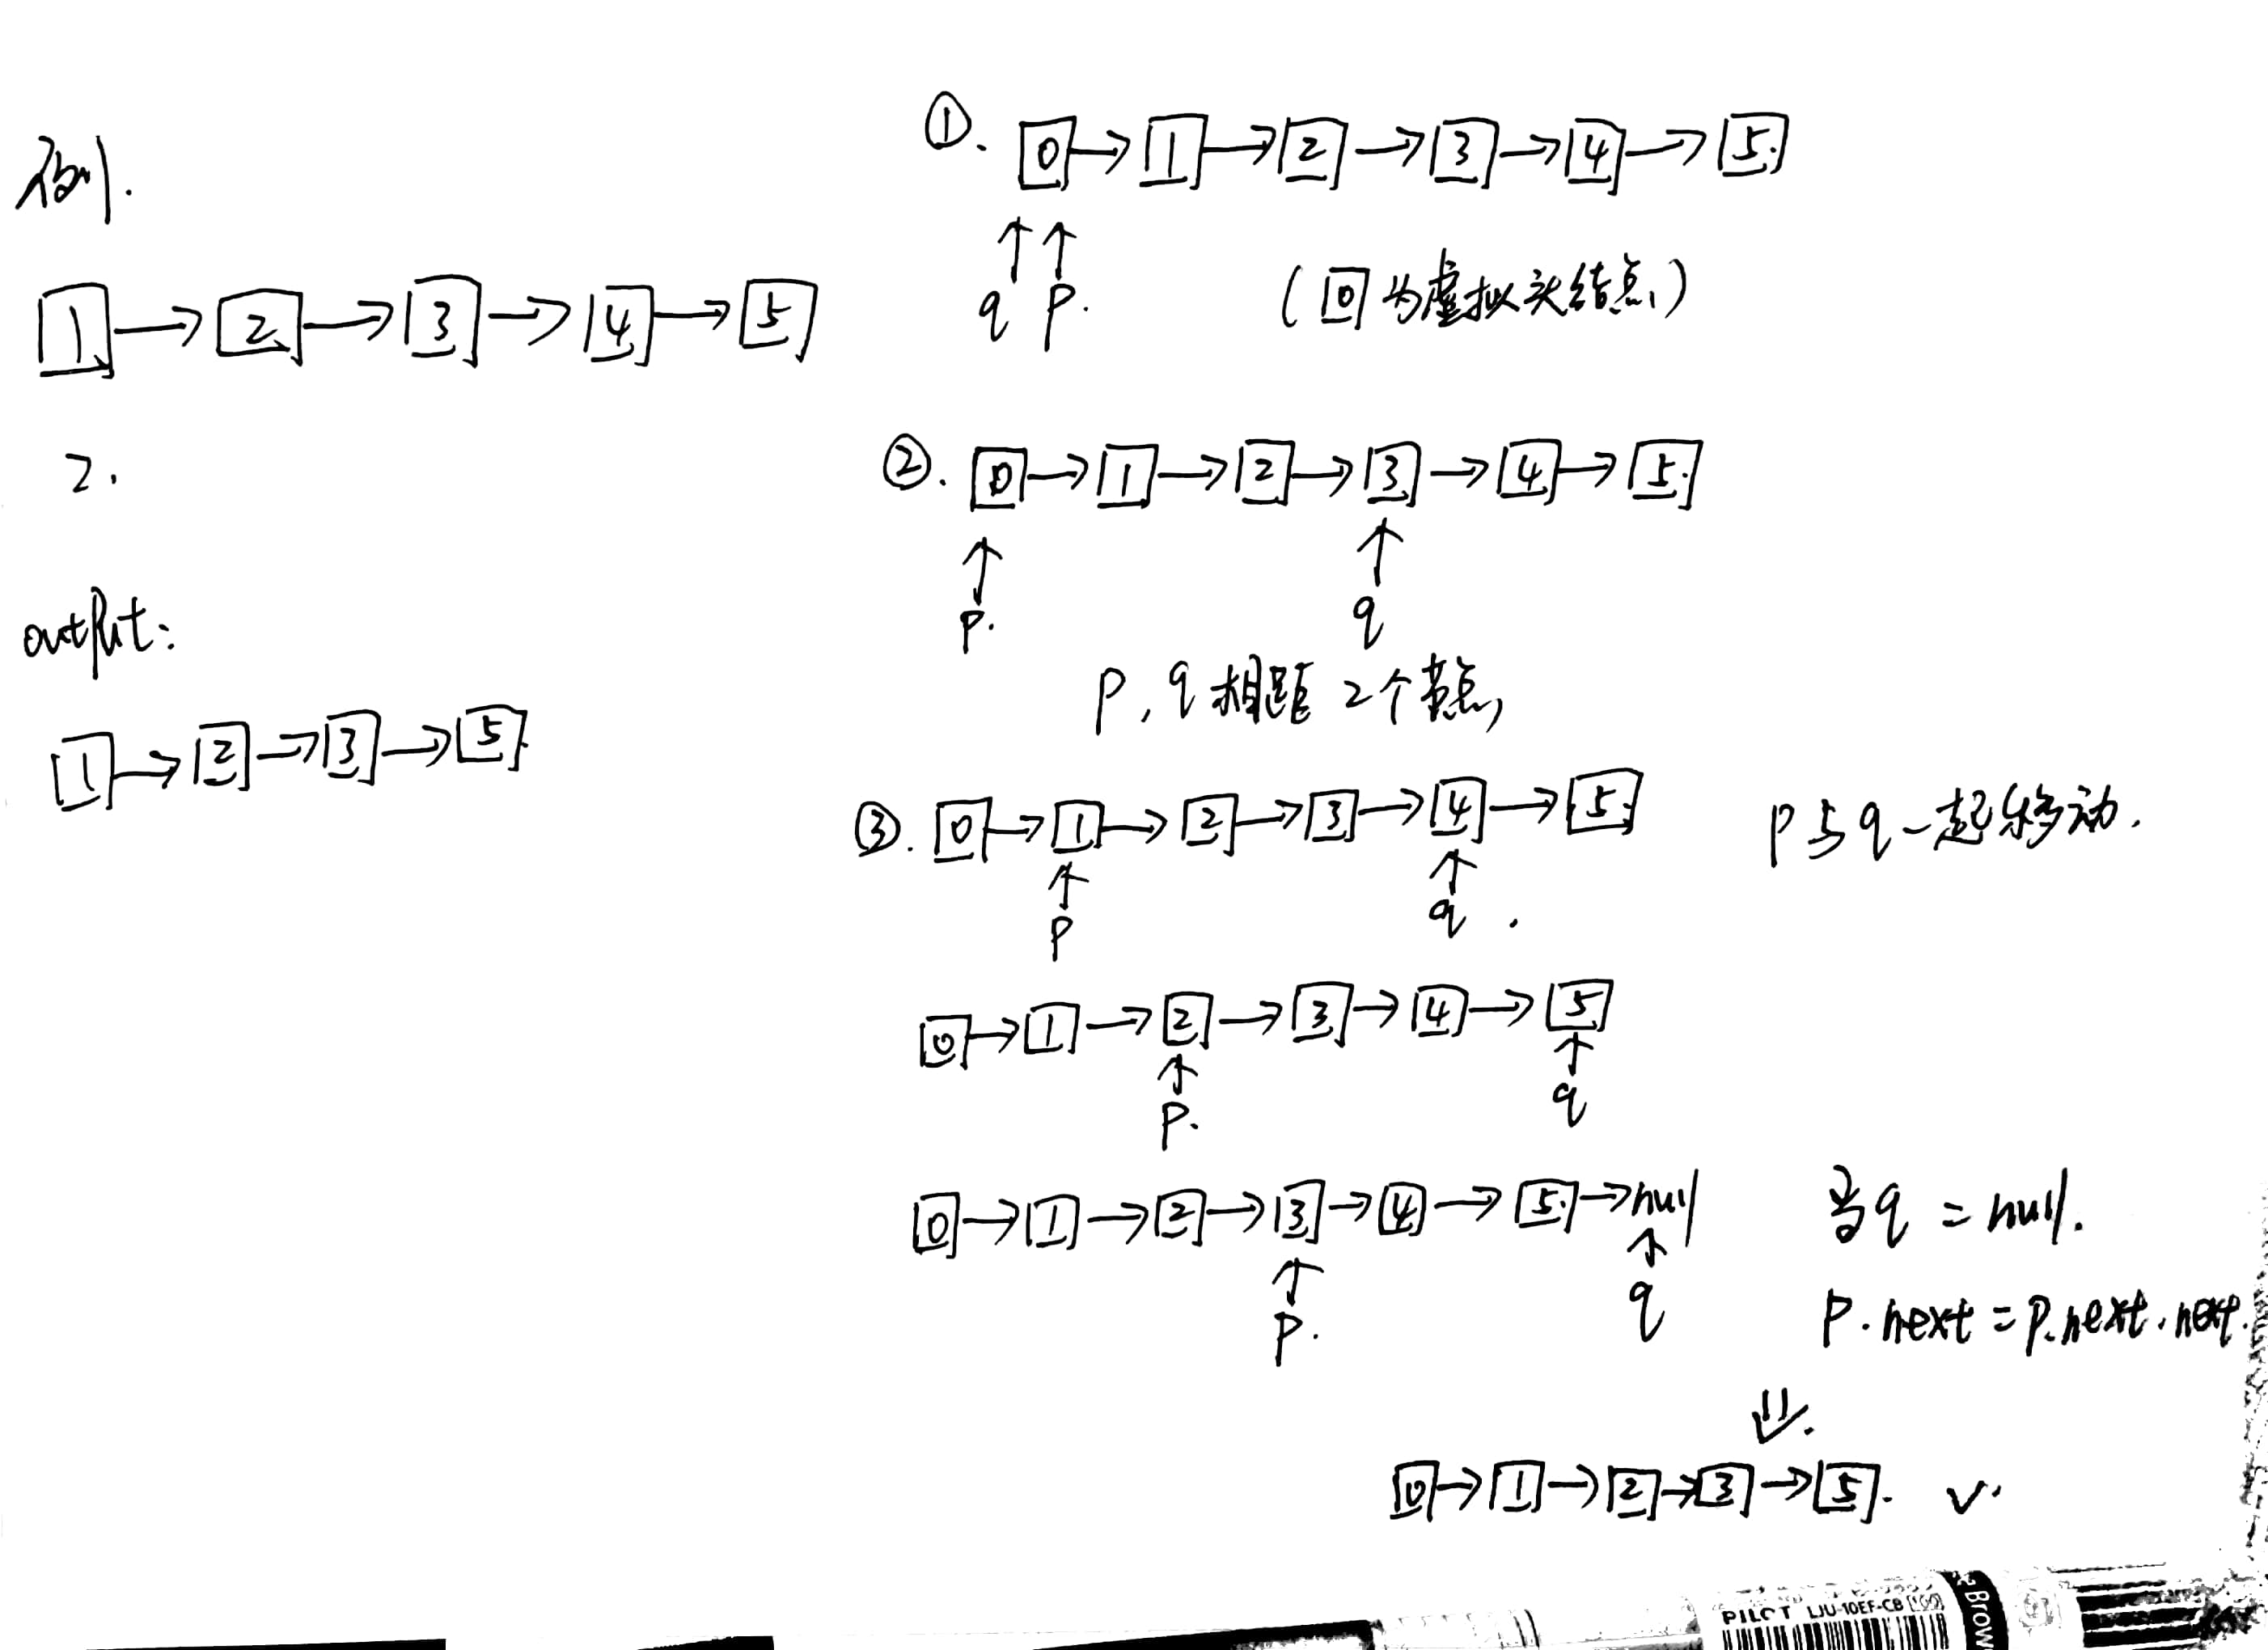 例.
1 → 2 → 3 → 4 → 5
2.
output:
1 → 2 → 3 → 5
①. 0 → 1 → 2 → 3 → 4 → 5.
q p.
(0为虚拟头结点)
②. 0 → 1 → 2 → 3 → 4 → 5.
p. q
p,q相距2个节点,
③. 0 → 1 → 2 → 3 → 4 → 5. p与q一起移动.
p q.
0 → 1 → 2 → 3 → 4 → 5
p. q
0 → 1 → 2 → 3 → 4 → 5. → null 当q = null.
p. q
p.next = p.next.next.
⇓.
0 → 1 → 2 → 3 → 5. √.
PILOT LJU-10EF-CB
Brow